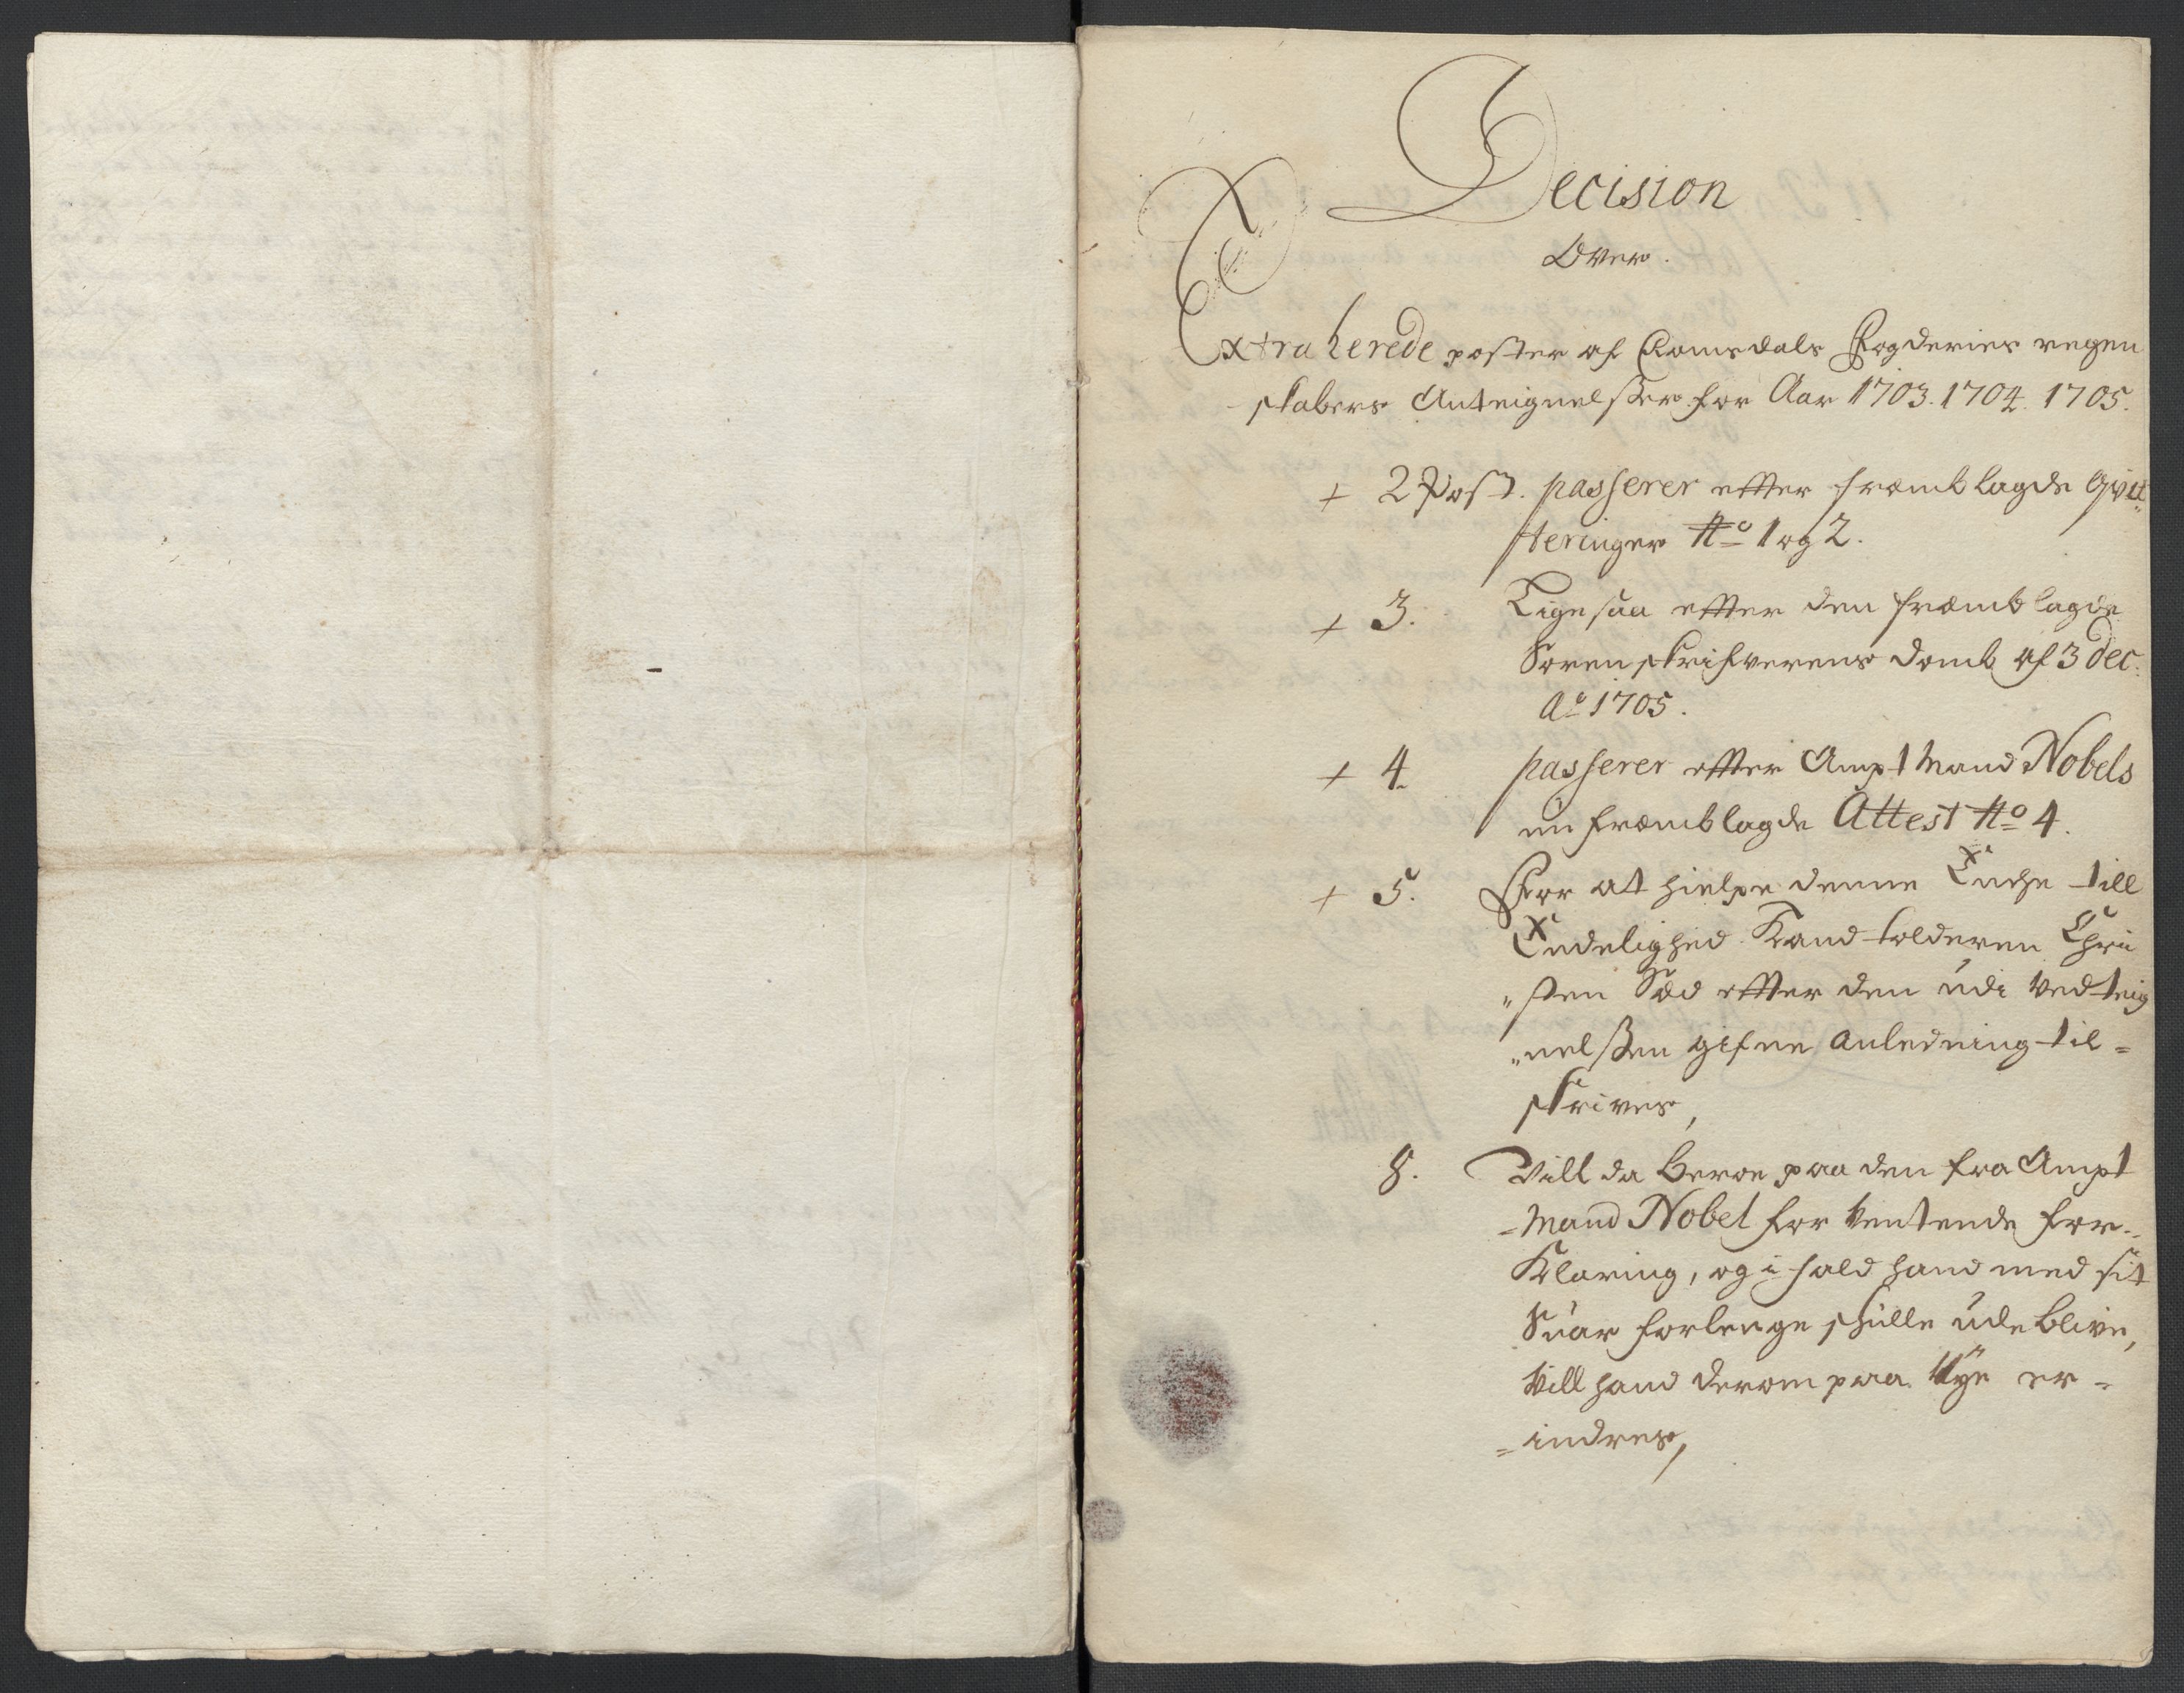 Decision
Over.
Extraherede poster af Romsdals Fogderies regen
skabers Anteignelsser for Aar 1703. 1704. 1705.
+ 2 Post. passerer effter fremblagde Qvit„
teringer No 1 og 2.
+ 3. Ligesaa effter den fremblagde
Sorenskrifverens domb af 3 dec.
Ao 1705.
+ 4. passerer effter Amptmand Nobels
nu fremblagde Attest No 4.
+ 5. For at hielpe denne till
Endelighed Kand tolderen Chri
„sten effter den udi Vedteig
„nelssen gifne anledning til=
skrives,
8. Vill da beroe paa den fra Ampt
=Mand Nobel forventende for=
Klaring, og i fald hand med sit
Suar forlenge skulle udeblive,
vill hand derom paa Nye er=
=indres,